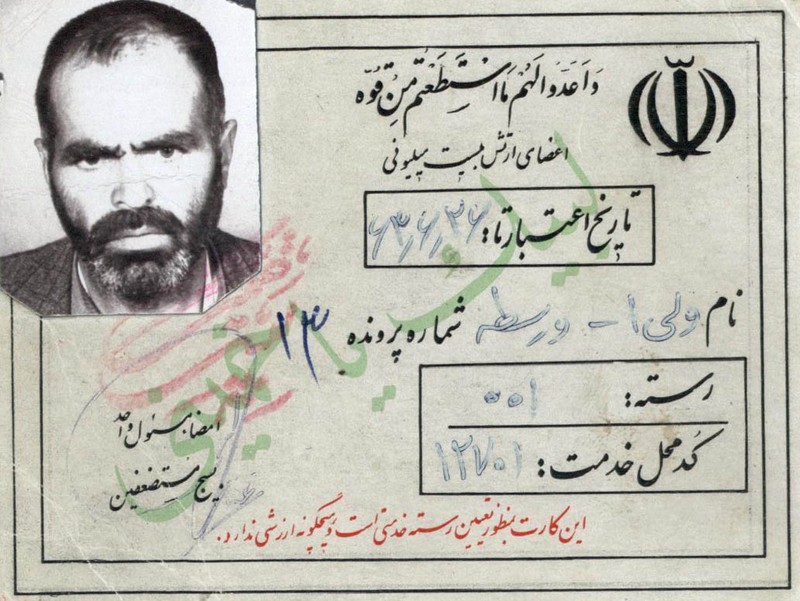 وَاَعِدُّوا لَهُمْ مَا اسْتَطَعْتُمْ مِنْ قُوَّه
اعضای ارتش بیست میلیونی
تاریخ اعتبار تا: ۶۳٫۶٫۲۶
نام ولی ا - ورسطه شماره پرونده ۱۳
رسته: ۰۰۱
کد محل خدمت: ۱۲۷۰۱
امضاء مسئول واحد
بسیج مستضعفین
لبیک یا خمینی
این کارت بمنظور تعیین رسته خدمتی است و هیچگونه ارزشی ندارد.